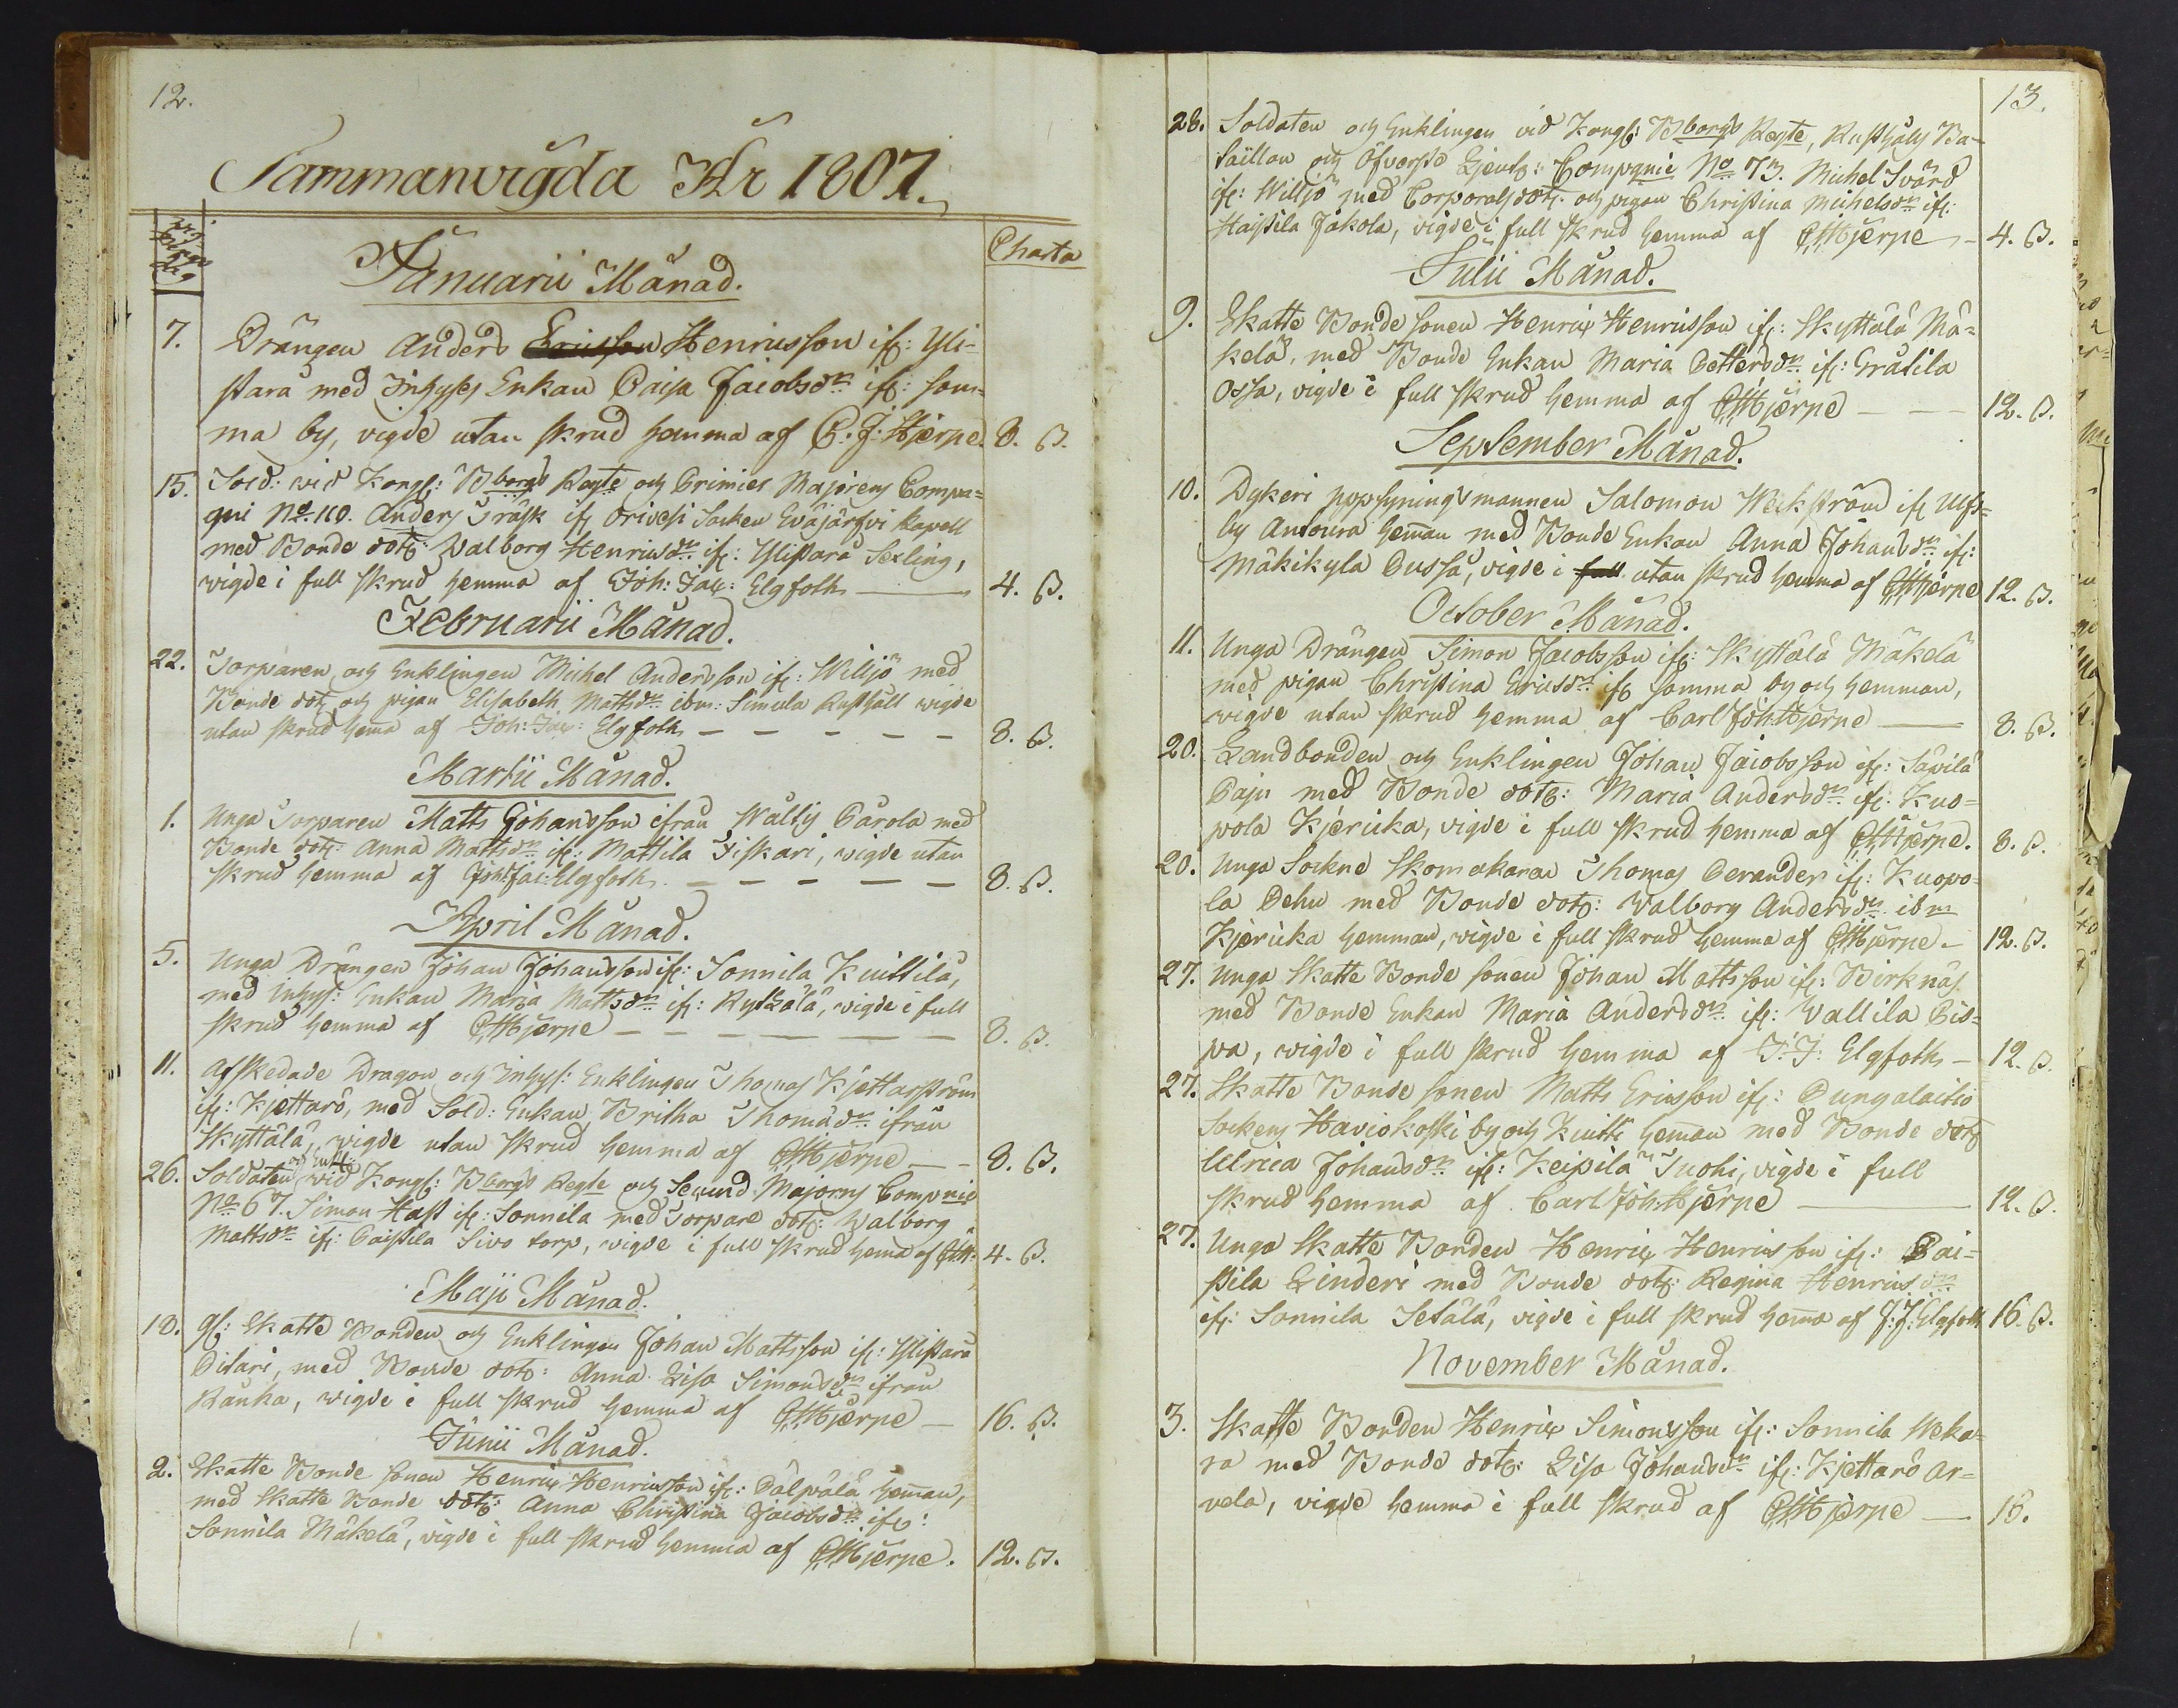 12.
Sammanvigda År 1807.
Charta
Januarii Månad.
7. Drängen Anders Ericsson Henricsson ifr: Yli-
stara med Inhyses Enkan Caisa Jacobsdr ifr: sam-
ma by, vigde utan skrud hemma af C: J: Hjerpe. 8. β.
15. Sold: wid Kongl: Bborgs Regte och Primier Majorens Compa-
gni No. 110. Anders Träsk ifr Orivesi Socken Eväjärfvi Kapell
med Bonde dotr: Walborg Henricsdr ifr: Ylistara Sexling,
wigde i full skrud hemma af Joh: Jac: Elgfoth 4. β.
Februarii Månad.
22. Torparen och Enklingen Michel Andersson ifr: Wilijö med
Bonde dotr och pigan Elisabeth Mattsdr ibm: Simula Rusthåll wigde
utan skrud hema af Joh: Jac: Elgfoth 8. β.
Martii Månad.
1. Unga Torparen Matts Johansson ifrån Waltij Carola med
Bonde dotr: Anna Mattsdr ifr: Mattila Fiskari, wigde utan
skrud hemma af Joh: Jac: Elgfoth. 8. β.
April Månad.
5. Unga Drängen Johan Johansson ifr: Sonnila Knittilä,
med Inhys: Enkan Maria Mattsdr ifr: Ryssälä, wigde i full
skrud hemma af CJHjerpe 8. β.
11. Afskedade Dragon och Inhys: Enklingen Thomas Kjettarström
ifr: Kjettarö, med Sold: Enkan Britha Thomædr ifrån
Skyttälä, wigde utan skrud hemma af CJHjerpe 8. β.
26. Soldaten och Enkl: vid Kongl: Bborgs Regte och Secund Majorens Compnie
No 67. Simon Hast ifr: Sonnila med Torpare dotr: Walborg
Mattsdr ifr: Caisila Sivo torp, vigde i full skrud hema af CJH: 4. β.
Maji Månad.
18. gl: Skatte Bonden och Enklingen Johan Mattsson ifr: Ylistara
Pitari, med Bonde dotr: Anna Lisa Simonsdr ifrån
Ranka, wigde i full skrud hemma af CJHjerpe 16. β.
Junii Månad.
2. Skatte Bonde sonen Henric Henricsson ifr: Pälpälä heman,
med Skatte Bonde dotr: Anna Christina Jacobsdr ifr:
Sonnila Mäkelä, vigde i full skrud hemma af CJHjerpe. 12. β.
13.
28. Soldaten och Enklingen vid Kongl: Bborgs Regte, Rusthålls Ba-
taillon och Öfverste Ljeutn: Compgnie No 73. Michel Svärd
ifr: Willjö med Corporals dotr. och pigan Christina Michelsdr ifr:
Haisila Jakola, vigde i full skrud hemma af CJHjerpe 4. β.
Julii Månad.
9. Skatte Bonde sonen Henric Henricsson ifr: Skyttälä Mä-
kelä, med Bonde Enkan Maria Pettersdr ifr: Gråtila
Ossa, vigde i full skrud hemma af CJHjerpe 12. β.
September Månad.
10. Dykeri uppsyningsmannen Salomon Weckström ifr Ulfs-
by Antoura heman med Bonde Enkan Anna Johansdr ifr:
Mäkikyla Dussa, vigde i full utan skrud hemma af CJHjerpe 12. β.
October Månad.
11. Unga Drängen Simon Jacobsson ifr: Skyttälä Mäkelä
med pigan Christina Ericsdr ifr samma by och hemman,
wigde utan skrud hemma af Carl Joh:Hjerpe 8. β.
20. Landbonden och Enklingen Johan Jacobsson ifr: Säpilä
Paju med Bonde dotr: Maria Andersdr ifr: Kuo-
pola Kjericka, vigde i full skrud hemma af CJHjerpe. 8. β.
20. Unga Sockne Skomakaren Thomas Perander ifr: Kuopo-
la Pehu med Bonde dotr: Walborg Andersdr ibm
Kjericka hemman, wigde i full skrud hemma af CJHjerpe 12. β.
27. Unga Skatte Bonde sonen Johan Mattsson ifr: Birknäs.
med Bonde Enkan Maria Andersdr ifr: Wallila Pis-
pa, wigde i full skrud hemma af J:J: Elgfoth 12. β.
27. Skatte Bonde sonen Matts Ericsson ifr: Pungalaitio
Sockens Haviokoski by och Knitti heman med Bonde dotr
Ulrica Johansdr ifr: Keipilä Tuohi, vigde i full
skrud hemma af Carl Joh:Hjerpe 12. β.
27. Unga Skatte Bonden Henric Henricsson ifr: Pai-
stila Linderi med Bonde dotr: Regina Henricsdr
ifr: Sonnila Setälä, vigde i full skrud hema af J:J: Elgfoth 16. β.
November Månad.
3. Skatte Bonden Henric Simonsson ifr: Sonnila Weka-
ra med Bonde dotr: Lisa Johansdr ifr: Kjettarö Ar-
vela, vigde hemma i full skrud af CJHjerpe 16.